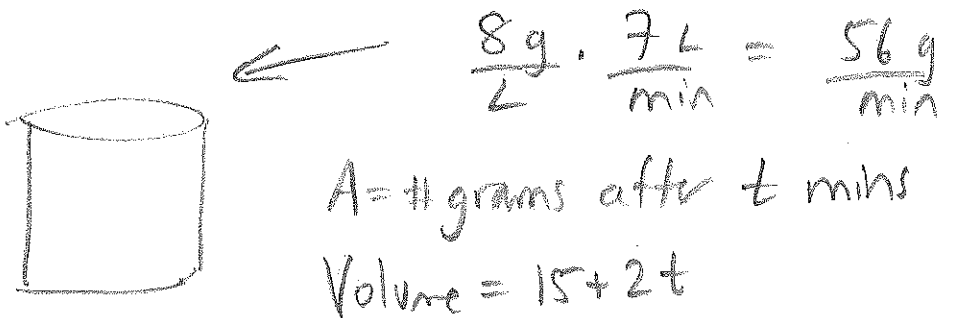 8 g/L · 7 L/min = 56 g/min
A = # grams after t mins
Volume = 15 + 2t